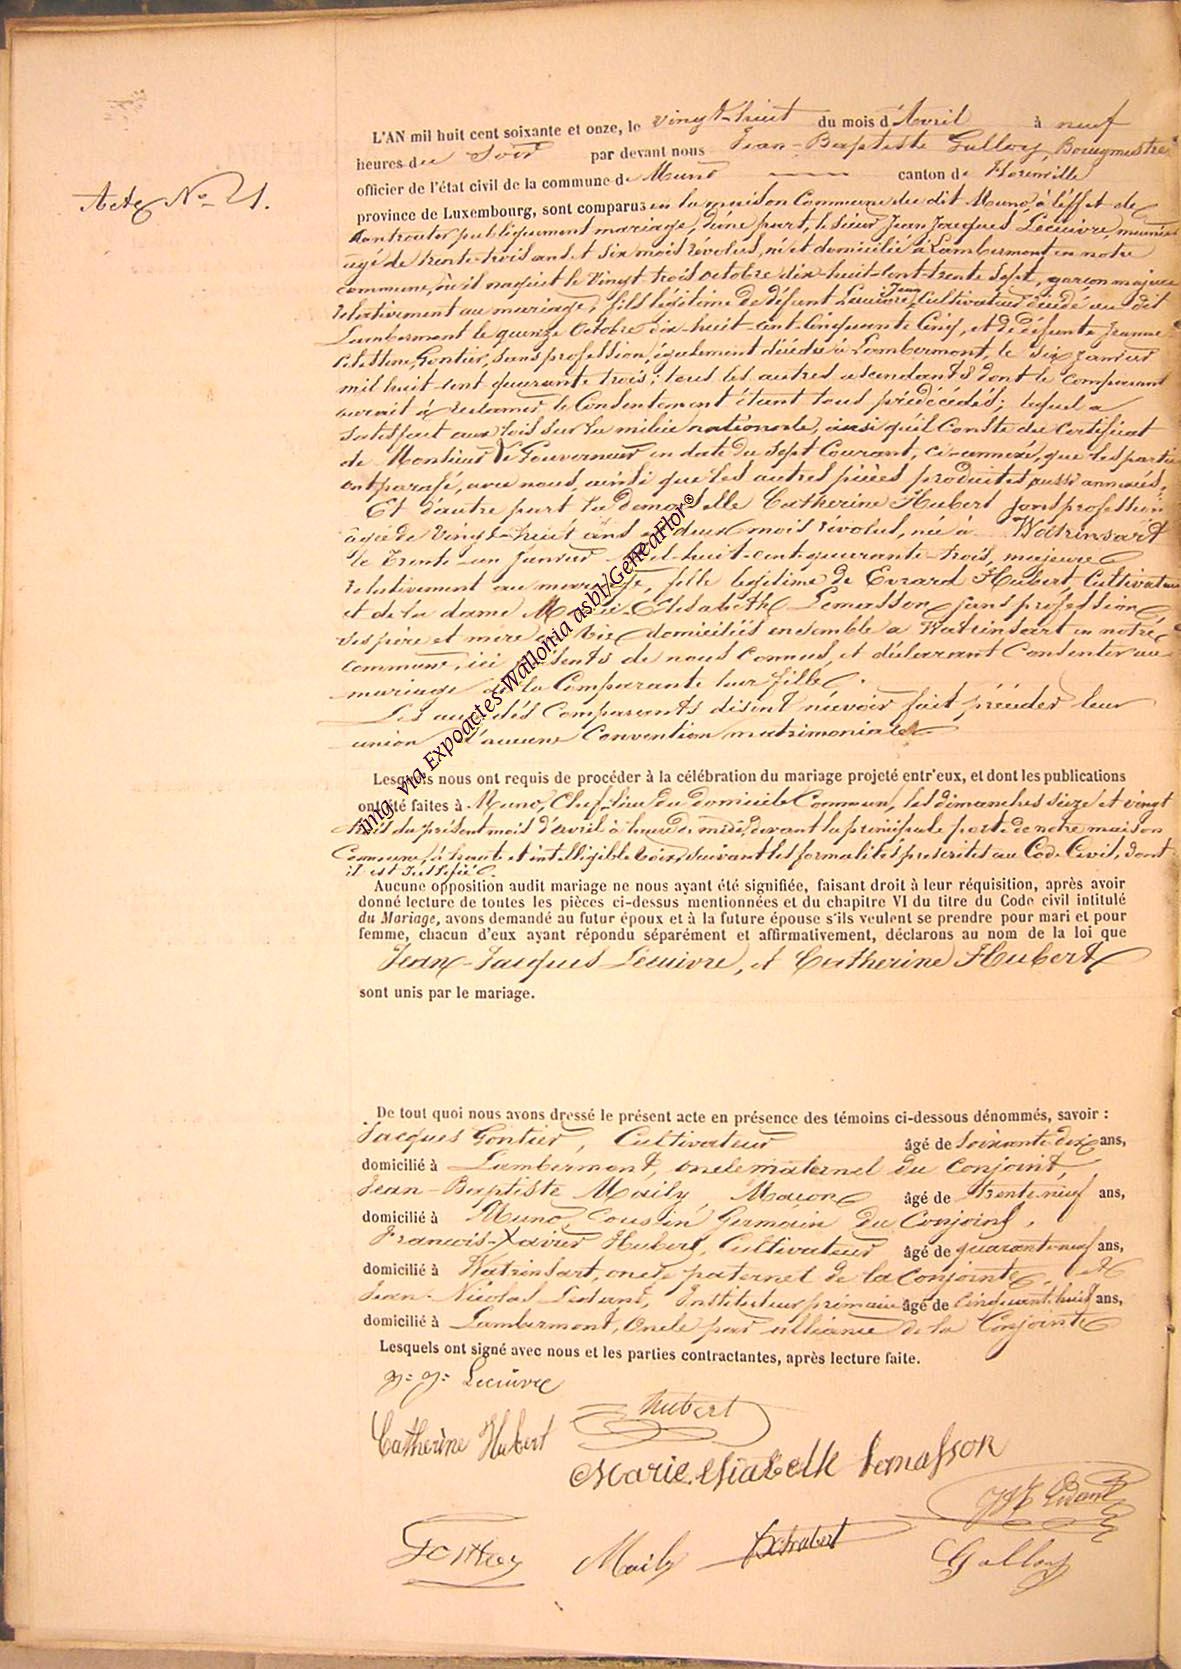 Acte No 21.
L'AN mil huit cent soixante et onze, le vingt-huit du mois d'Avril à neuf
heures du soir par devant nous Jean-Baptiste Galloy, Bourgmestre
officier de l'état civil de la commune de Muno canton de Florenville
province de Luxembourg, sont comparus en la maison Commune du dit Muno, à l'effet de
contracter publiquement mariage, d'une part, le sieur Jean Jacques Lecuivre, meunier
âgé de trente-trois ans et six mois révolus, né et domicilié à Lambermont en notre
commune, où il naquit le vingt-trois octobre dix-huit-cent-trente sept, garçon majeur
relativement au mariage, fils légitime de défunt Lecuivre, Jean Cultivateur décédé au dit
Lambermont le quinze Octobre dix-huit-cent-cinquante cinq, et de défunte Jeanne
Célestine Gontier, sans profession, également décédée à Lambermont, le six Janvier
mil huit-cent quarante trois; tous les autres ascendants dont le comparant
aurait à réclamer le Consentement étant tous prédécédés; lequel a
satisfait aux lois sur la milice nationale, ainsi qu'il conste du certificat
de Monsieur le Gouverneur en date du sept Courant, ci-annexé, que les parties
ont parafé, avec nous, ainsi que les autres pièces produites aussi annexées.
Et d'autre part la demoiselle Catherine Hubert sans profession
âgée de vingt-huit ans deux mois révolus, née à Watrinsart
le Trente-un Janvier huit-cent-quarante-trois, majeure
relativement au mariage, fille légitime de Evrard Hubert, Cultivateur
et de la dame Marie-Elisabeth Lemasson sans profession
ses père et mère vie domiciliés ensemble à Watrinsart en notre
commune, ici présents de nous connus, et déclarant consentir au
mariage de la Comparante leur fille.
Les susdits comparants disent n'avoir fait précéder leur
union d'aucune convention matrimoniale.
Lesquels nous ont requis de procéder à la célébration du mariage projeté entr'eux, et dont les publications
ont été faites à Muno, Chef-lieu du domicile Commun, les dimanches seize et vingt
trois du présent mois d'avril à heure de midi, devant la principale porte de notre maison
Commune, à haute et intelligible voix, suivant les formalités prescrites au Code Civil, dont
il est justifié.
Aucune opposition audit mariage ne nous ayant été signifiée, faisant droit à leur réquisition, après avoir
donné lecture de toutes les pièces ci-dessus mentionnées et du chapitre VI du titre du Code civil intitulé
du Mariage, avons demandé au futur époux et à la future épouse s'ils veulent se prendre pour mari et pour
femme, chacun d'eux ayant répondu séparément et affirmativement, déclarons au nom de la loi que
Jean-Jacques Lecuivre, et Catherine Hubert
sont unis par le mariage.
De tout quoi nous avons dressé le présent acte en présence des témoins ci-dessous dénommés, savoir :
Jacques Gontier, Cultivateur âgé de soixante dix ans,
domicilié à Lambermont, oncle maternel du conjoint,
Jean-Baptiste Maily, Maçon âgé de trente neuf ans,
domicilié à Muno, cousin Germain du Conjoint,
François-Xavier Hubert, Cultivateur âgé de quarante neuf ans,
domicilié à Watrinsart, oncle paternel de la conjointe, et
Jean-Nicolas Ledant, Instituteur primaire âgé de cinquante huit ans,
domicilié à Lambermont, Oncle par alliance de la Conjointe
Lesquels ont signé avec nous et les parties contractantes, après lecture faite.
J= J= Lecuivre
Hubert
Catherine Hubert
Marie. Eliabeth Lemasson
Ledant
Maily
Hubert
Galloy
img. via Expoactes-Wallonia asbl/GeneaFlor©